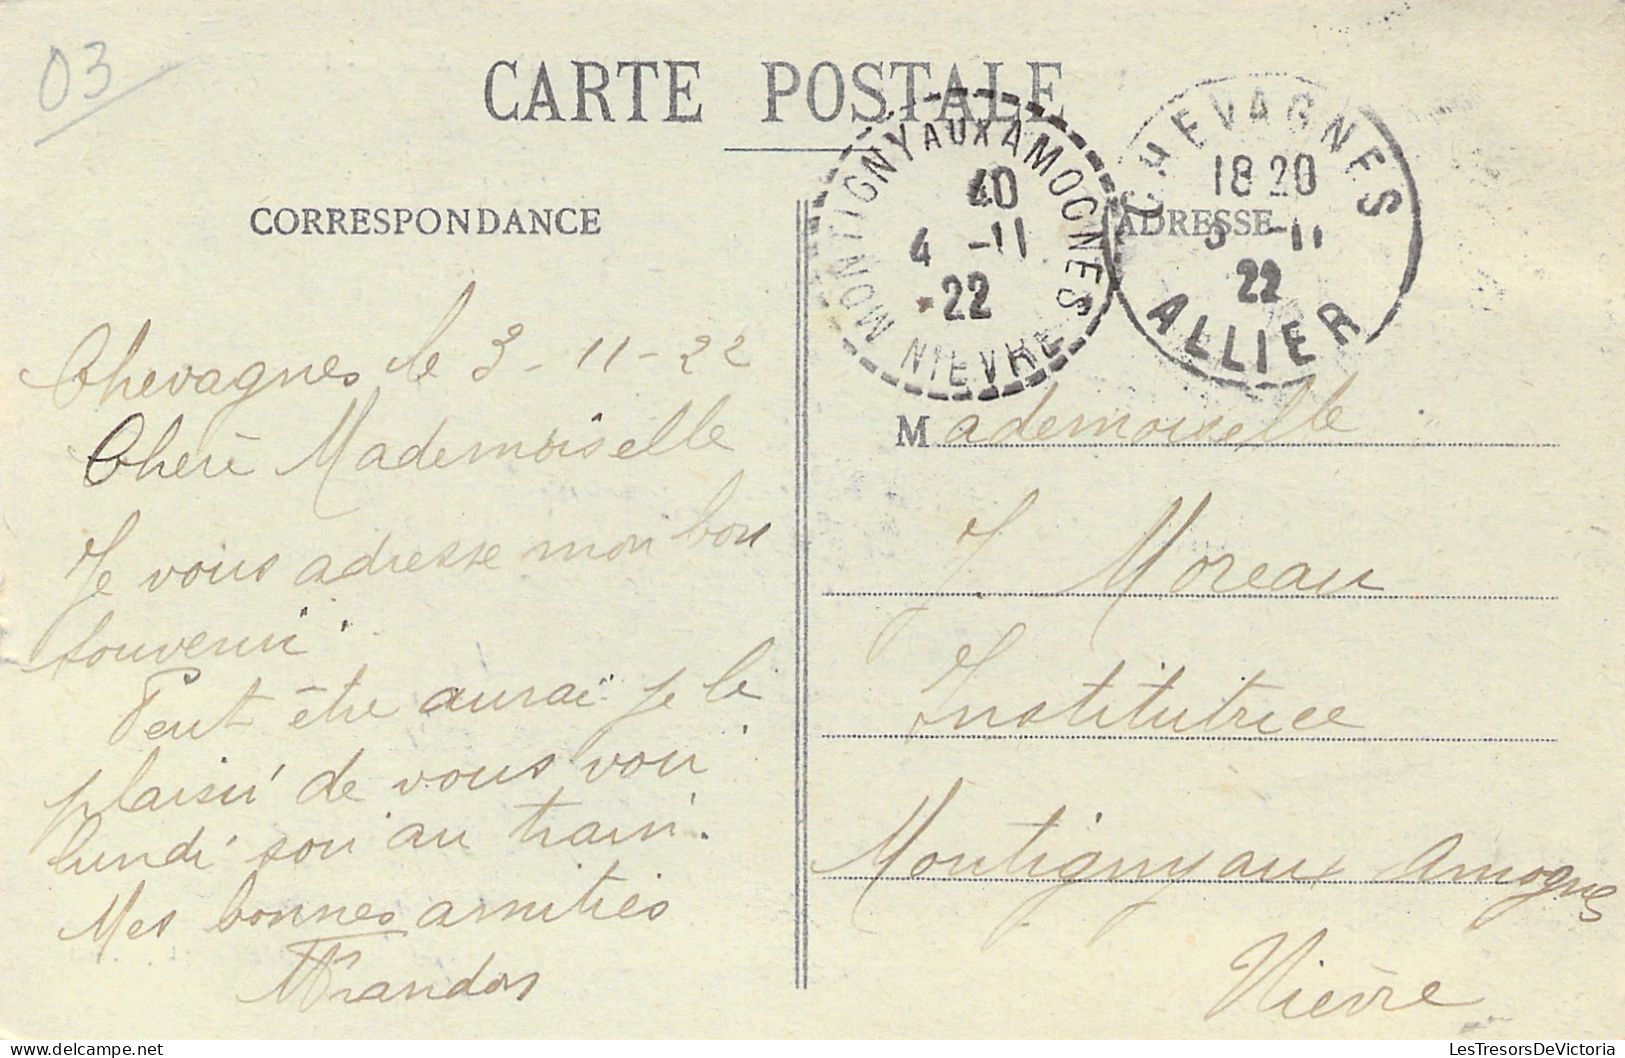 03
CARTE POSTALE
CORRESPONDANCE
ADRESSE
MONTIGNY AUX AMOGNES
40
4 -11
22
NIEVRE
CHEVAGNES
18 20
3 -11
22
ALLIER
Chevagnes le 3-11-22
Chère Mademoiselle
Je vous adresse mon bon
souvenir.
Peut être aurai je le
plaisir de vous voir
lundi soir au train.
Mes bonnes amitiés
Mademoiselle
J. Moreau
Institutrice
Montigny aux Amognes
Nièvre
LesTresorsDeVictoria